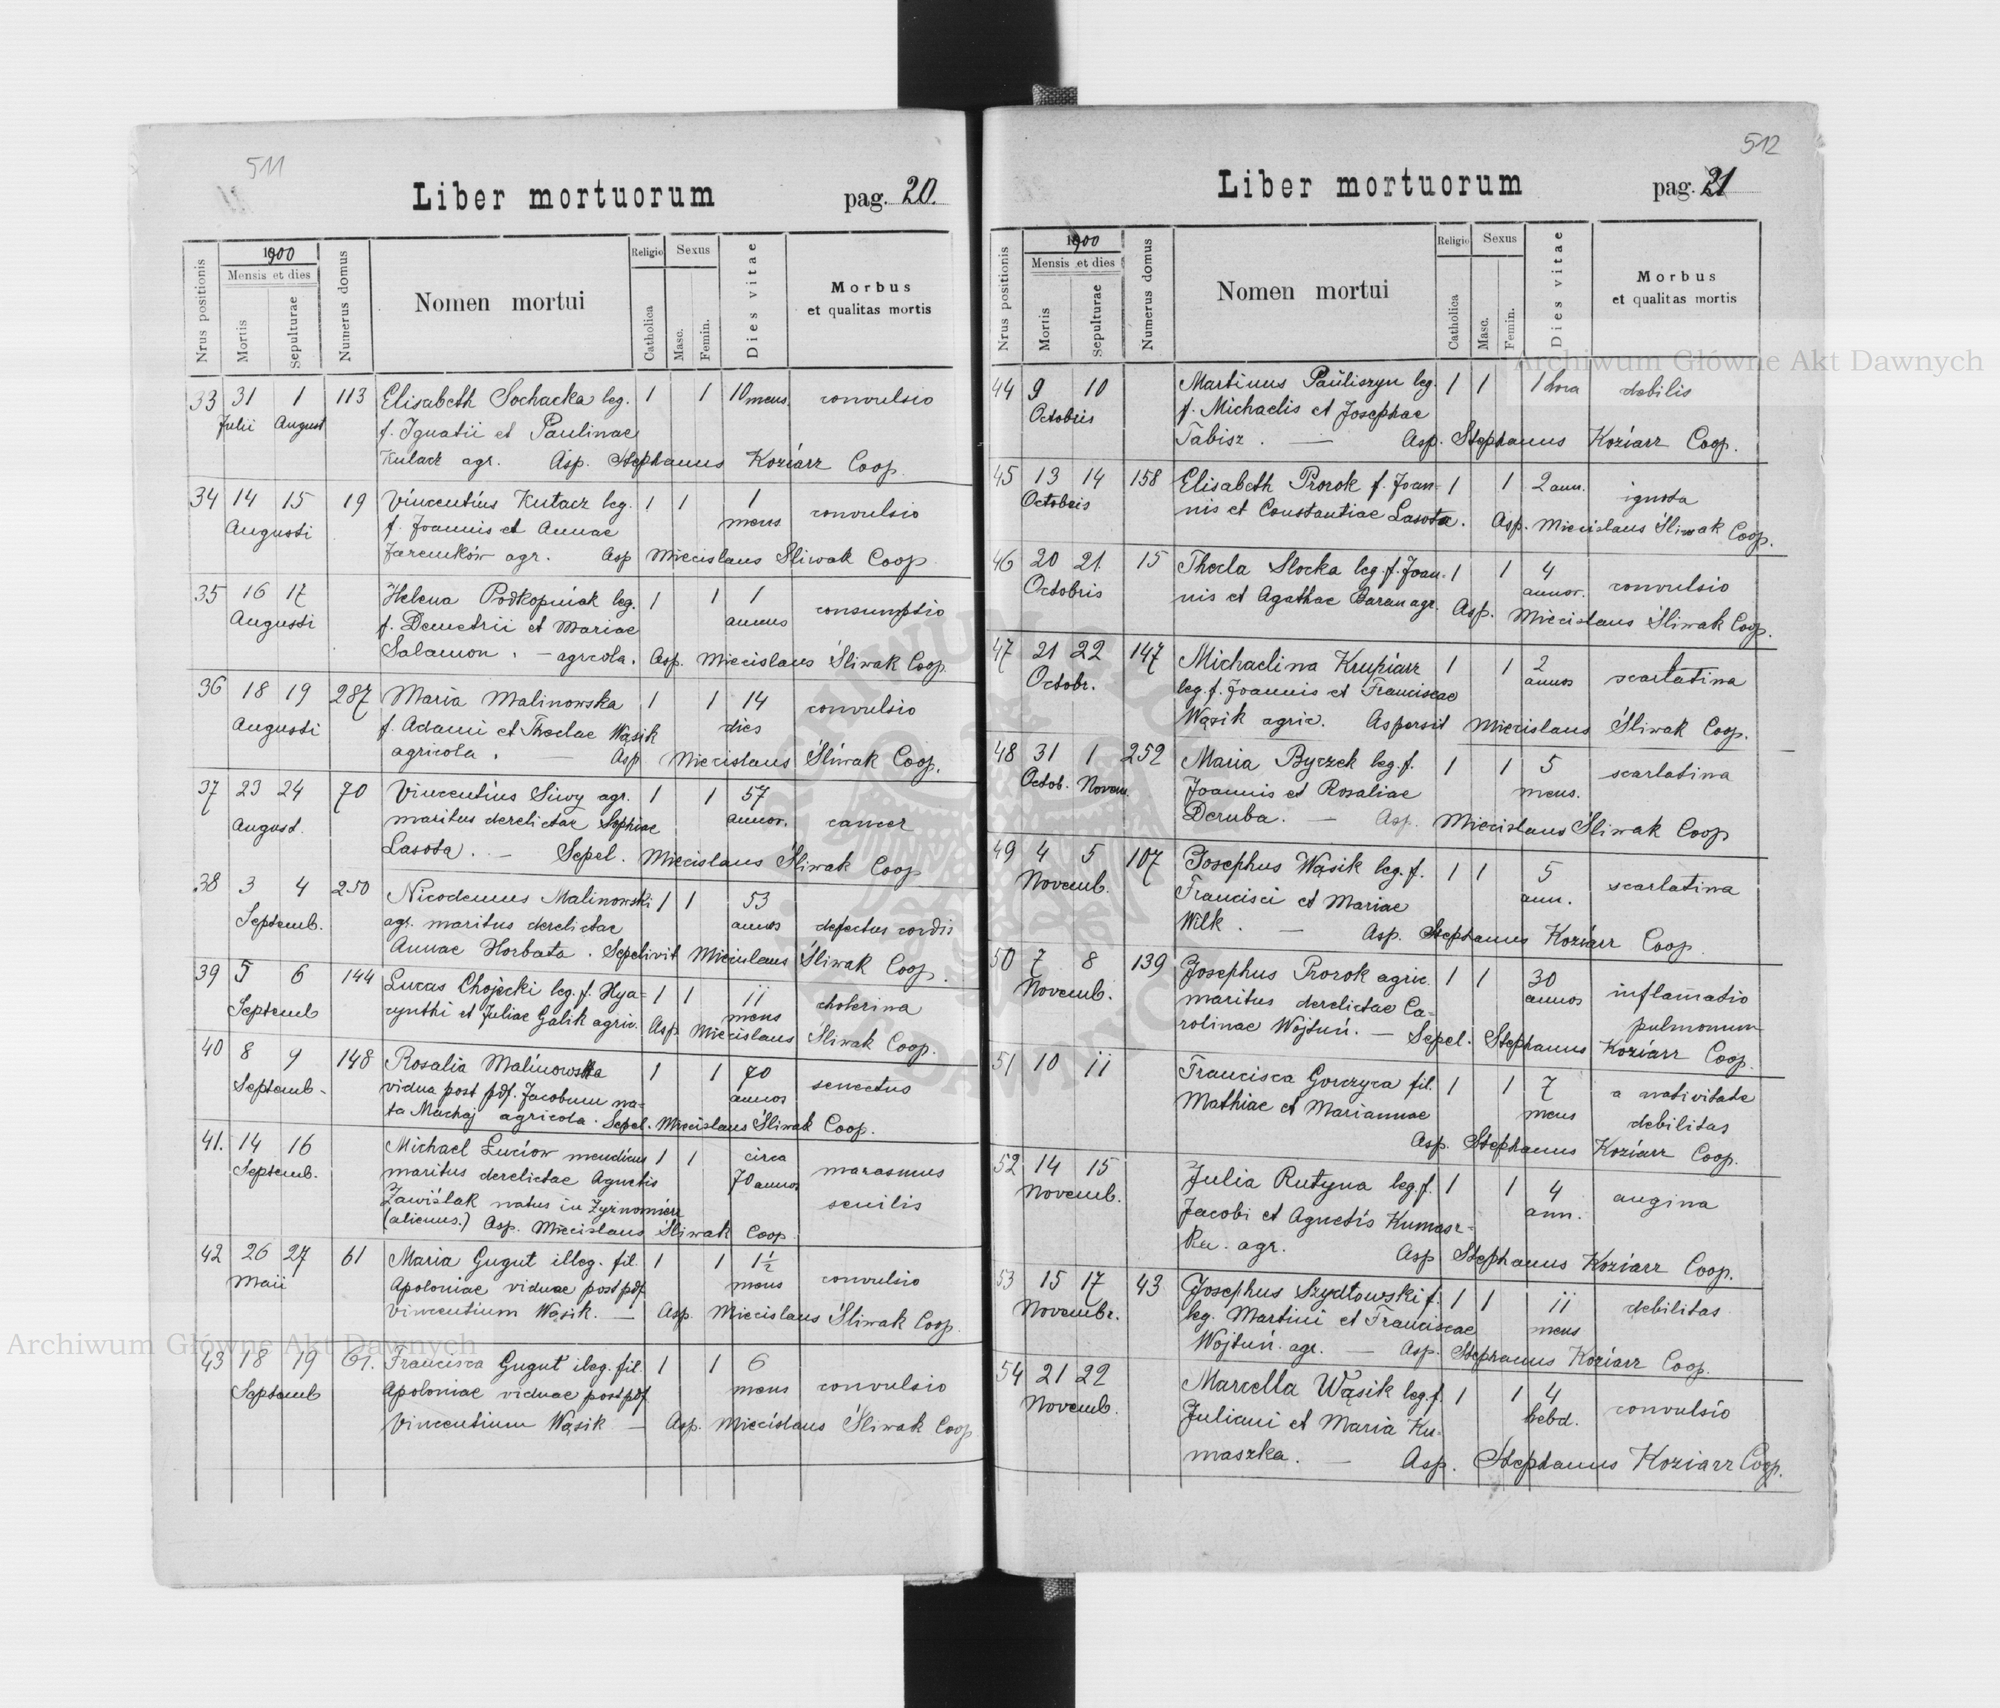 511
Liber mortuorum pag. 20.
Nrus positionis
1900
Mensis et dies
Mortis
Sepulturae
Numerus domus
Nomen mortui
Religio
Catholica
Sexus
Masc.
Femin.
Dies vitae
Morbus
et qualitas mortis
33 31 1 113 Elisabeth Sochacka leg. 1 1 10 mens. convulsio
Julii August f. Ignatii et Paulinae
Kutacz agr. Asp. Stephanus Koziarz Coop.
34 14 15 19 Vincentius Kutacz leg. 1 1 1 convulsio
Augusti f. Joannis et Annae mens
Jaremków agr. Asp Miecislaus Śliwak Coop
35 16 17 Helena Podkopniak leg. 1 1 1 consumptio
Augusti f. Demetrii et Mariae annus
Salamon . - agricola. Asp. Miecislaus Śliwak Coop.
36 18 19 287 Maria Malinowska 1 1 14 convulsio
Augusti f. Adami et Theclae Wąsik dies
agricola . — Asp Miecislaus Śliwak Coop.
37 23 24 70 Vincentius Siwy agr. 1 1 57
August. maritus derelictae Sophiae annor. cancer
Lasota . - Sepel. Miecislaus Śliwak Coop
38 3 4 250 Nicodemus Malinowski 1 1 53
Septemb. agr. maritus derelictae annos defectus cordis
Annae Horbata . Sepelivit Miecislaus Śliwak Coop.
39 5 6 144 Lucas Chojecki leg. f. Hya= 1 1 11 cholerina
Septemb cynthi et Juliae Galik agric. mens
Asp. Miecislaus Śliwak Coop.
40 8 9 148 Rosalia Malinowska 1 1 70 senectus
Septemb- vidua post pdf. Jacobum na- annos
ta Machaj agricola . Sepel. Miecislaus Śliwak Coop.
41. 14 16 Michael Luciow mendicus 1 1 circa
Septemb. maritus derelictae Agnetis 70 annos marasmus
Zawiślak natus in senilis
(alienus.) Asp. Miecislaus Śliwak Coop
42 26 27 61 Maria Gugut illeg. fil. 1 1 1½
Maii Apoloniae viduae post pdf mens convulsio
Vincentium Wąsik. — Asp. Miecislaus Śliwak Coop.
43 18 19 61. Francisca Gugut ileg. fil. 1 1 6
Septemb Apoloniae viduae post pdf mens convulsio
Vincentium Wąsik — Asp. Miecislaus Śliwak Coop
512
Liber mortuorum pag. 21
Nrus positionis
1900
Mensis et dies
Mortis
Sepulturae
Numerus domus
Nomen mortui
Religio
Catholica
Sexus
Masc.
Femin.
Dies vitae
Morbus
et qualitas mortis
44 9 10 Martinus Pauliszyn leg. 1 1 1 hora debilis
Octobris f. Michaelis et Josephae
Tabisz . — Asp. Stephanus Koziarz Coop.
45 13 14 158 Elisabeth Prorok f. Joan= 1 1 2 ann. ignota
Octobris nis et Constantiae Lasota. Asp. Miecislaus Śliwak Coop.
46 20 21 15 Thecla Slocka leg. f. Joan. 1 1 4 convulsio
Octobris nis et Agathae Baran agr. annor.
Asp. Miecislaus Śliwak Coop.
47 21 22 147 Michaelina Krupiarz 1 1 2 scarlatina
Octobr. leg. f. Joannis et Franciscae annos
Wąsik agric. Aspersit Miecislaus Śliwak Coop.
48 31 1 252 Maria Byczek leg. f. 1 1 5 scarlatina
Octob. Novem. Joannis et Rosaliae mens.
Deruba. — Asp. Miecislaus Śliwak Coop
49 4 5 107 Josephus Wąsik leg. f. 1 1 5 scarlatina
Novemb. Francisci et Mariae ann.
Wilk . — Asp. Stephanus Koziarz Coop
50 7 8 139 Josephus Prorok agric. 1 1 30 inflamatio
Novemb. maritus derelictae Ca- annos pulmonum
rolinae Wojtuń. — Sepel. Stephanus Koziarz Coop.
51 10 11 Francisca Gorczyca fil. 1 1 7 a nativitate
Mathiae et Mariannae mens debilitas
Asp. Stephanus Koziarz Coop.
52 14 15 Julia Rutyna leg. f. 1 1 4 angina
Novemb. Jacobi et Agnetis Kumasz= ann.
ka. agr. Asp Stephanus Koziarz Coop.
53 15 17 43 Josephus Szydłowski f. 1 1 11 debilitas
Novembr. leg. Martini et Franciscae mens
Wojtuń. agr. — Asp. Stephanus Koziarz Coop.
54 21 22 Marcella Wąsik leg. f. 1 1 4 convulsio
Novemb. Juliani et Maria Ku- hebd.
maszka. — Asp. Stephanus Koziarz Coop.
Archiwum Główne Akt Dawnych
Archiwum Główne Akt Dawnych